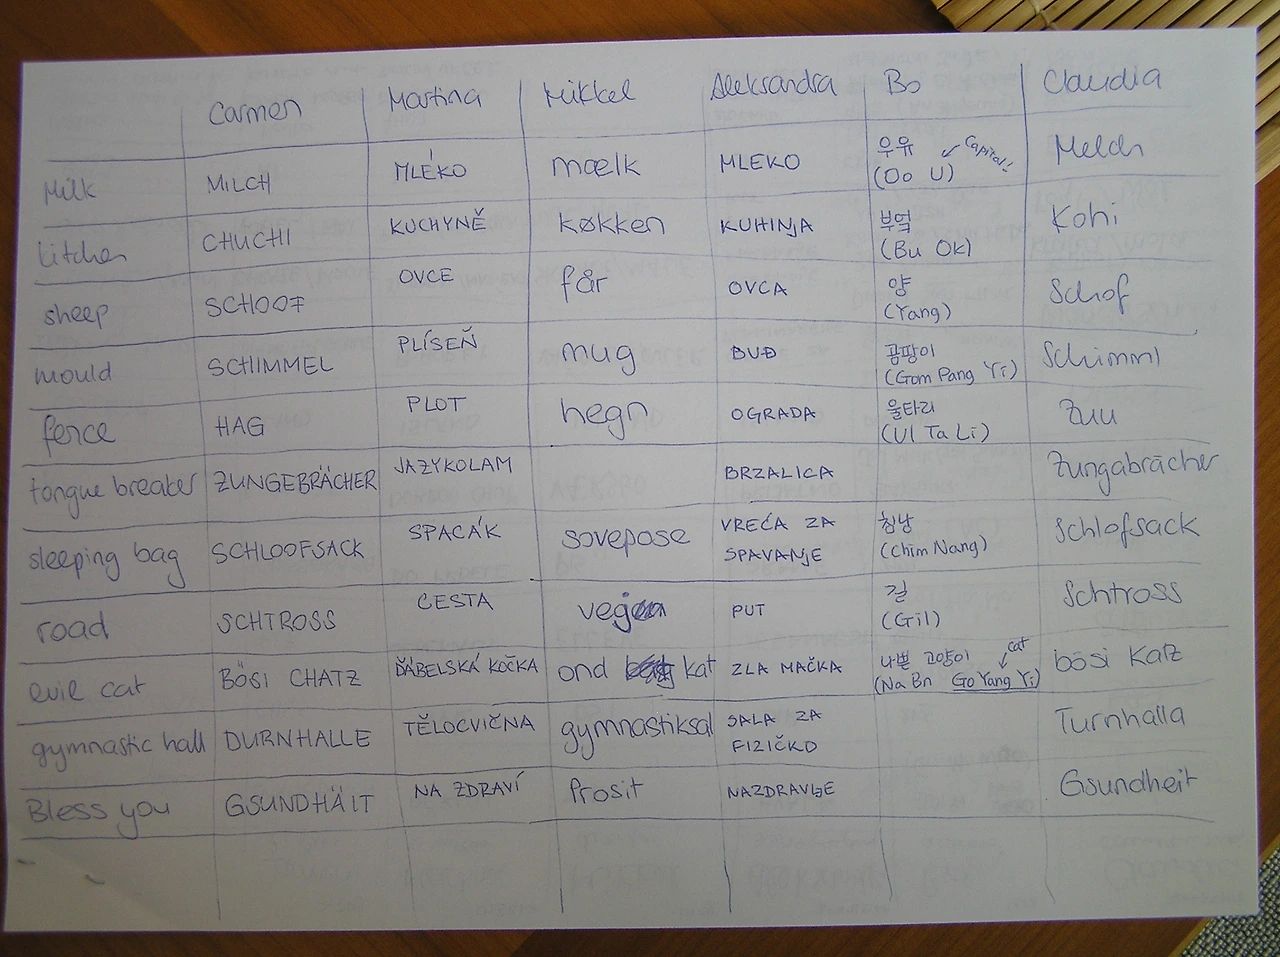 Carmen Martina Mikkel Aleksandra Bo Claudia
Milk MILCH MLÉKO mælk MLEKO 우유 ↙ Capital! Melch
(Oo U)
kitchen CHUCHI KUCHYNĚ køkken KUHINJA 부엌 Kohi
(Bu Ok)
sheep SCHOOF OVCE får OVCA 양 Schof
(Yang)
mould SCHIMMEL PLÍSEŇ mug BUĐ 곰팡이 Schimml
(Gom Pang Yi)
fence HAG PLOT hegn OGRADA 울타리 Zuu
(Ul Ta Li)
tongue breaker ZUNGEBRÄCHER JAZYKOLAM BRZALICA Zungabrächer
sleeping bag SCHLOOFSACK SPACÁK sovepose VREĆA ZA 침낭 Schlofsack
SPAVANJE (Chim Nang)
road SCHTROSS CESTA PUT 길 Schtross
(Gil)
evil cat BÖSI CHATZ ĎÁBELSKÁ KOČKA ond kat ZLA MAČKA 나쁜 고양이 cat bösi Katz
(Na Bn Go Yang Yi)
gymnastic hall DURNHALLE TĚLOCVIČNA gymnastiksal SALA ZA Turnhalla
FIZIČKO
Bless you GSUNDHÄIT NA ZDRAVÍ Prosit NAZDRAVLJE Gsundheit